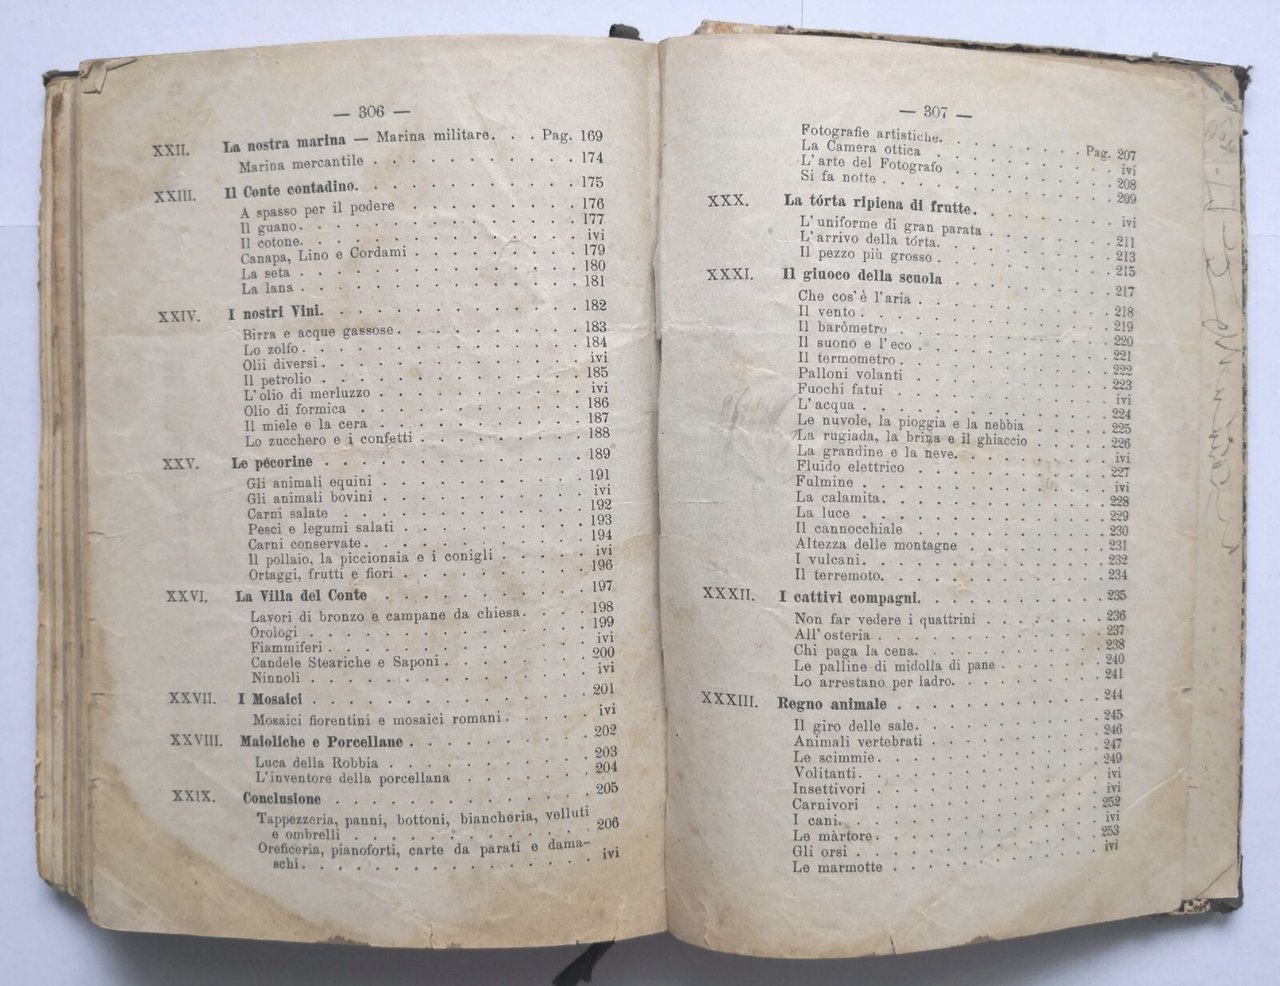 — 306 —
XXII. La nostra marina — Marina militare. . . Pag. 169
Marina mercantile . . . . . . . . . . . 174
XXIII. Il Conte contadino. . . . . . . . . . . . 175
A spasso per il podere . . . . . . . . . . 176
Il guano. . . . . . . . . . . . . . . 177
Il cotone. . . . . . . . . . . . . . . ivi
Canapa, Lino e Cordami . . . . . . . . . 179
La seta . . . . . . . . . . . . . . . 180
La lana . . . . . . . . . . . . . . . 181
XXIV. I nostri Vini. . . . . . . . . . . . . . 182
Birra e acque gassose. . . . . . . . . . 183
Lo zolfo. . . . . . . . . . . . . . . 184
Olii diversi. . . . . . . . . . . . . . ivi
Il petrolio . . . . . . . . . . . . . . 185
L'olio di merluzzo . . . . . . . . . . . ivi
Olio di formica . . . . . . . . . . . . 186
Il miele e la cera . . . . . . . . . . . 187
Lo zucchero e i confetti . . . . . . . . . 188
XXV. Le pécorine . . . . . . . . . . . . . . 189
Gli animali equini . . . . . . . . . . . 191
Gli animali bovini . . . . . . . . . . . ivi
Carni salate . . . . . . . . . . . . . 192
Pesci e legumi salati . . . . . . . . . . 193
Carni conservate. . . . . . . . . . . . 194
Il pollaio, la piccionaia e i conigli . . . . . ivi
Ortaggi, frutti e fiori . . . . . . . . . . 196
XXVI. La Villa del Conte . . . . . . . . . . . 197
Lavori di bronzo e campane da chiesa. . . . 198
Orologi . . . . . . . . . . . . . . . 199
Fiammiferi . . . . . . . . . . . . . . ivi
Candele Steariche e Saponi . . . . . . . . 200
Ninnoli . . . . . . . . . . . . . . . ivi
XXVII. I Mosaici . . . . . . . . . . . . . . . 201
Mosaici fiorentini e mosaici romani. . . . . ivi
XXVIII. Maioliche e Porcellane . . . . . . . . . . 202
Luca della Robbia . . . . . . . . . . . 203
L'inventore della porcellana . . . . . . . 204
XXIX. Conclusione . . . . . . . . . . . . . . 205
Tappezzeria, panni, bottoni, biancheria, velluti
e ombrelli . . . . . . . . . . . . . 206
Oreficeria, pianoforti, carte da parati e dama-
schi. . . . . . . . . . . . . . . . ivi
— 307 —
Fotografie artistiche. . . . . . . . Pag. 207
La Camera ottica . . . . . . . . . . . ivi
L'arte del Fotografo . . . . . . . . . . 208
Si fa notte . . . . . . . . . . . . . . 209
XXX. La tórta ripiena di frutte. . . . . . . . . . ivi
L'uniforme di gran parata . . . . . . . . 211
L'arrivo della tórta. . . . . . . . . . . 213
Il pezzo più grosso . . . . . . . . . . . 215
XXXI. Il giuoco della scuola . . . . . . . . . . 217
Che cos'è l'aria . . . . . . . . . . . . 218
Il vento . . . . . . . . . . . . . . . 219
Il baròmetro . . . . . . . . . . . . . 220
Il suono e l'eco . . . . . . . . . . . . 221
Il termometro . . . . . . . . . . . . . 222
Palloni volanti . . . . . . . . . . . . 223
Fuochi fatui . . . . . . . . . . . . . ivi
L'acqua . . . . . . . . . . . . . . . 224
Le nuvole, la pioggia e la nebbia . . . . . 225
La rugiada, la brina e il ghiaccio . . . . . 226
La grandine e la neve. . . . . . . . . . ivi
Fluido elettrico . . . . . . . . . . . . 227
Fulmine . . . . . . . . . . . . . . . ivi
La calamita. . . . . . . . . . . . . . 228
La luce . . . . . . . . . . . . . . . 229
Il cannocchiale . . . . . . . . . . . . 230
Altezza delle montagne . . . . . . . . . 231
I vulcani. . . . . . . . . . . . . . . 232
Il terremoto. . . . . . . . . . . . . . 234
XXXII. I cattivi compagni. . . . . . . . . . . . 235
Non far vedere i quattrini . . . . . . . . 236
All'osteria . . . . . . . . . . . . . . 237
Chi paga la cena. . . . . . . . . . . . 238
Le palline di midolla di pane . . . . . . . 240
Lo arrestano per ladro. . . . . . . . . . 241
XXXIII. Regno animale . . . . . . . . . . . . . 244
Il giro delle sale. . . . . . . . . . . . 245
Animali vertebrati . . . . . . . . . . . 246
Le scimmie. . . . . . . . . . . . . . 247
Volitanti. . . . . . . . . . . . . . . 249
Insettivori . . . . . . . . . . . . . . ivi
Carnivori . . . . . . . . . . . . . . ivi
I cani. . . . . . . . . . . . . . . . 252
Le màrtore. . . . . . . . . . . . . . ivi
Gli orsi . . . . . . . . . . . . . . . 253
Le marmotte . . . . . . . . . . . . . ivi